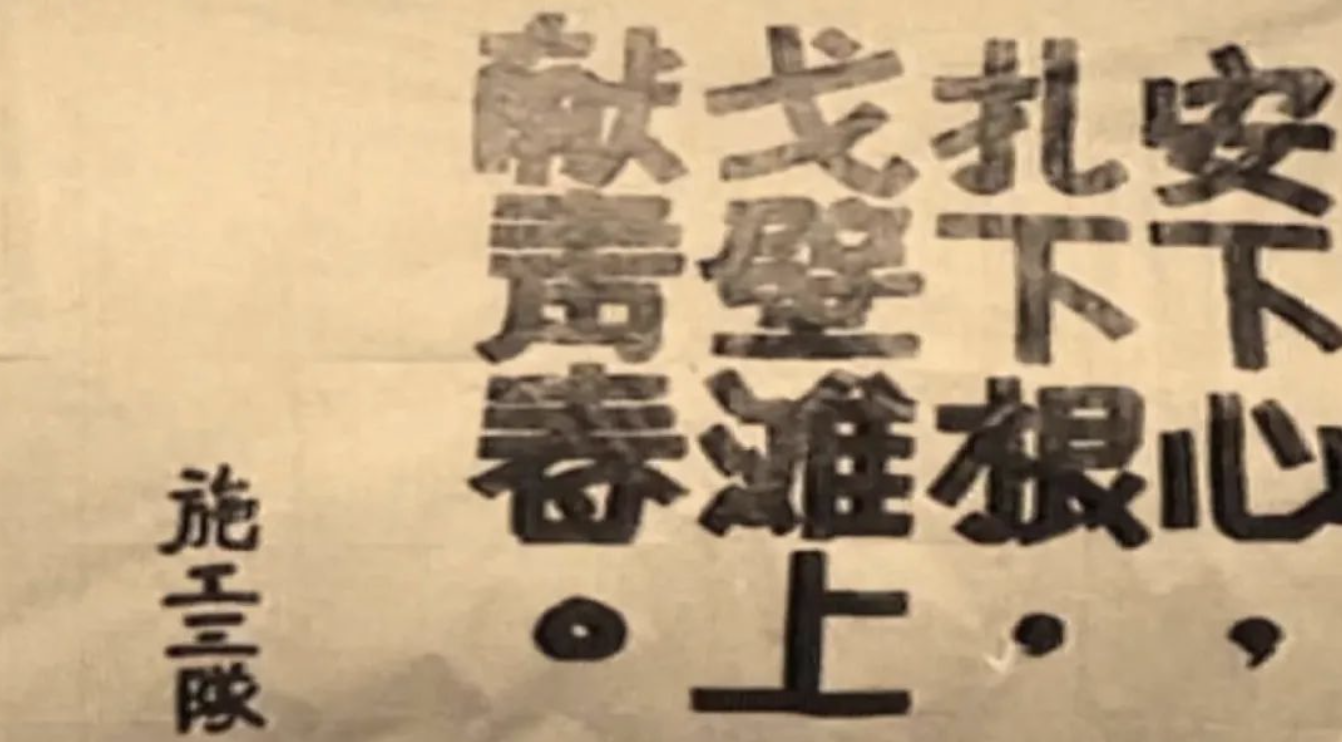 安下心，
扎下根.
戈壁滩上
献青春。
施工三隊